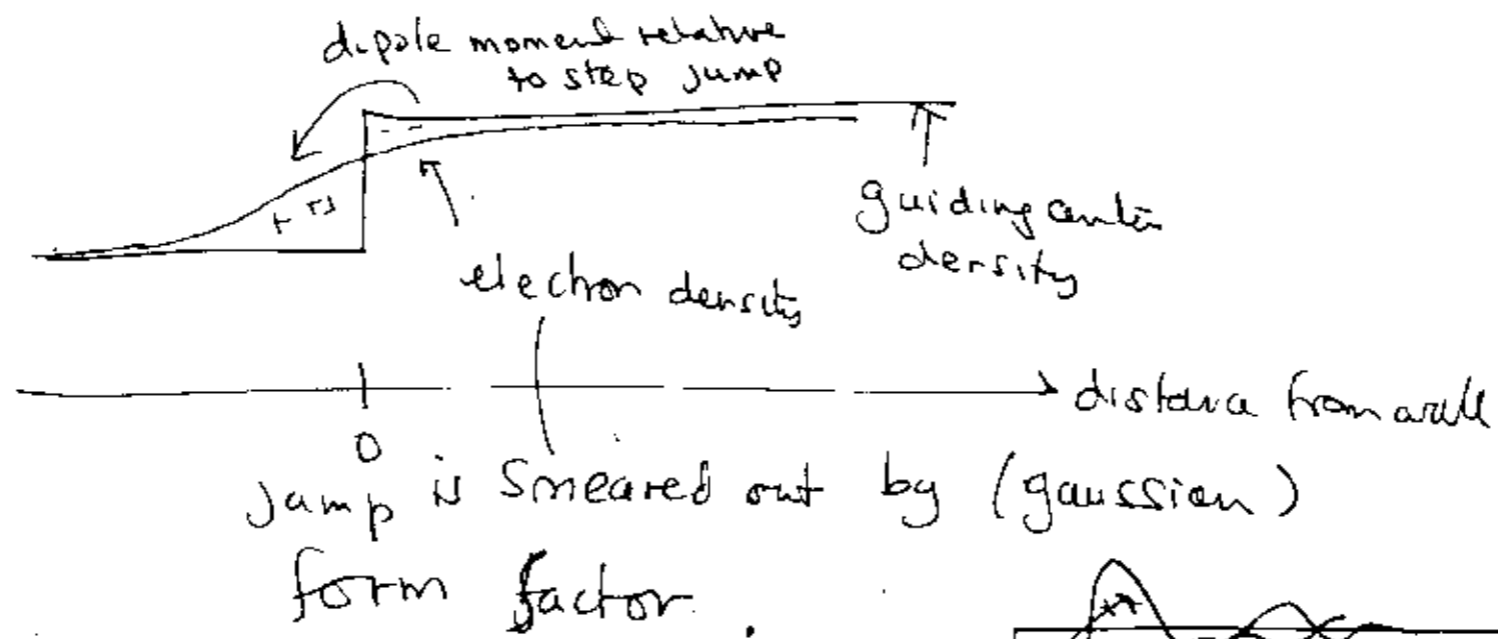 dipole moment relative
to step jump
- -
+ +
guiding center
density
electron density
distance from wall
0
Jump is smeared out by (gaussian)
form factor.